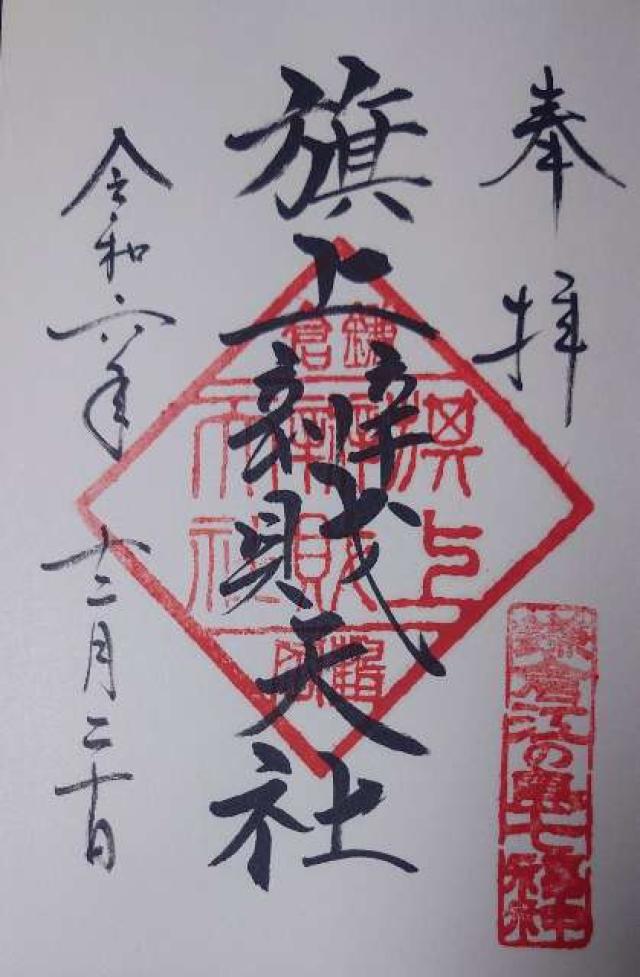 奉拝
旗上辨財天社
鎌倉
旗上
辨財
天社
鎌倉江の島七福神
令和六年十二月二十日